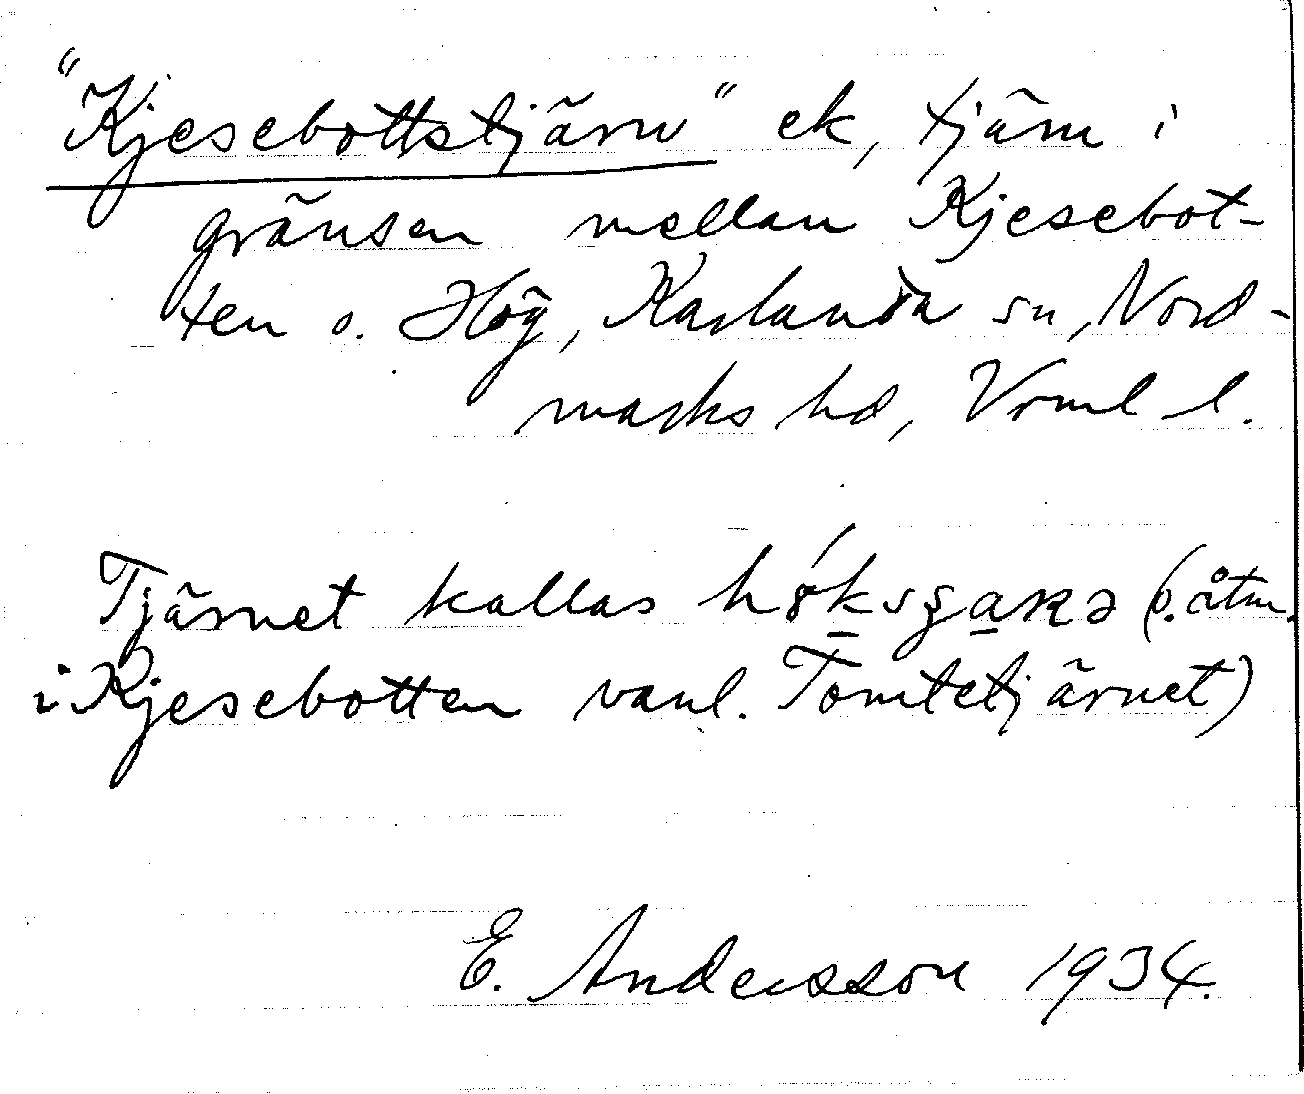 "Kjesebottstjärn" ek, tjärn i
gränsen mellan Kjesebot-
ten o. Hög, Karlanda sn, Nord-
marks hd, Vrml l.
Tjärnet kallas (o. åtm.
i Kjesebotten vanl. Tomtetjärnet)
E. Andersson 1934.